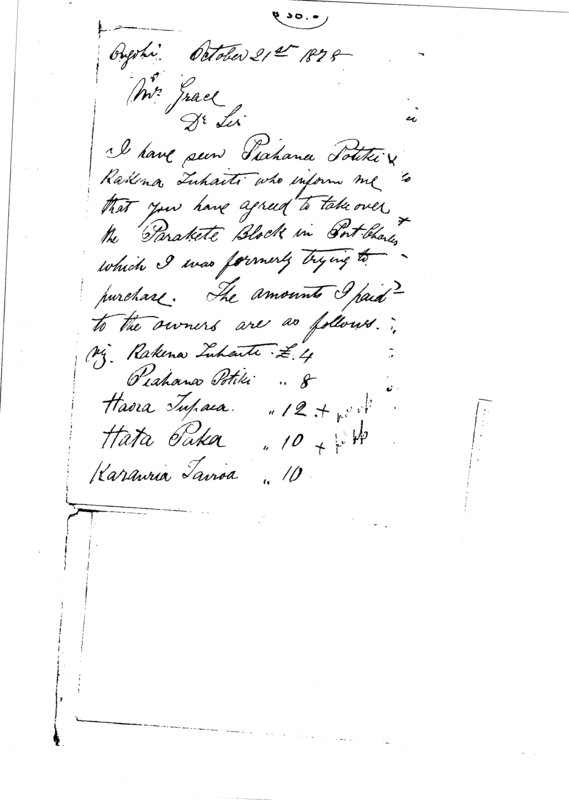 October 21st 1878
Mr Grace
Dr Sir
I have seen Piahana Potiki &
Rakena Tuhaiti who inform me
that you have agreed to take over
the Parakete Block in Port Charles
which I was formerly trying to
purchase. The amounts I paid
to the owners are as follows.
viz. Rakena Tuhaiti £.4
Piahana Potiki „ 8
Haora Tupaea. „ 12 +
Hata Paka „ 10 +
Karauria Tairoa „ 10